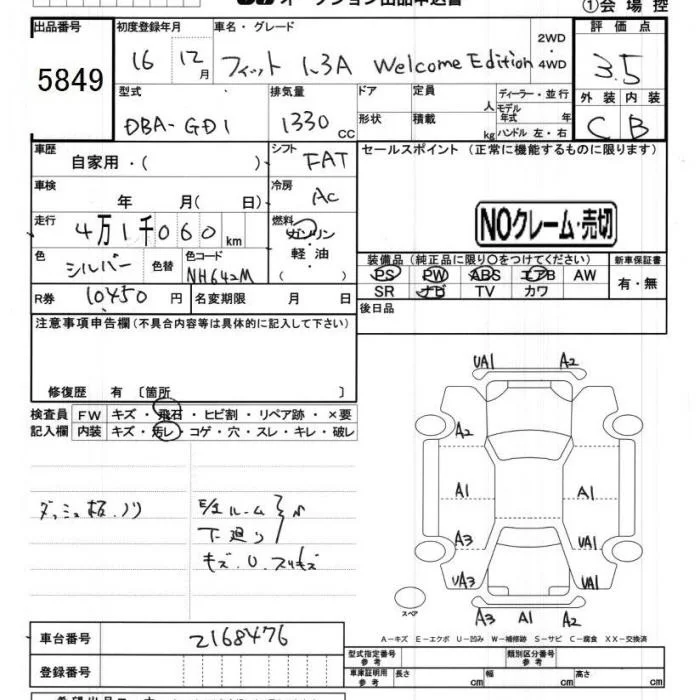 オークション出品申込書
①会場控
出品番号
5849
初度登録年月
16 12月
車名・グレード
フィット 1.3A Welcome Edition
2WD
4WD
評価点
3.5
型式
DBA-GD1
排気量
1330 CC
ドア
定員 人
ディーラー・並行
モデル年式 年
形状
積載 kg
ハンドル 左・右
外装 内装
C B
車歴
自家用・( )
シフト
FAT
セールスポイント (正常に機能するものに限ります)
車検
年 月( 日)
冷房
AC
走行
4万1千060 km
燃料
ガソリン
・
軽油
( )
NOクレーム・売切
色
シルバー
色替
色コード
NH642M
装備品(純正品に限り○をつけてください)
新車保証書
PS PW ABS エアB AW
有・無
SR ナビ TV カワ
R券 10450 円
名変期限 月 日
後日品
注意事項申告欄(不具合内容等は具体的に記入して下さい)
修復歴 有 〔箇所 〕
検査員
記入欄
FW キズ・飛石・ヒビ割・リペア跡・×要
内装 キズ・汚レ・コゲ・穴・スレ・キレ・破レ
ダッシュ板、ノリ
下廻り
キズ、U、スリキズ
UA1 A2
A2
A1 A1
A3 UA1
UA3 UA1
A3 A1 A2
スペア
A-キズ E-エクボ U-凹み W-補修跡 S-サビ C-腐食 XX-交換済
車台番号
2168476
登録番号
型式指定番号
参考
類別区分番号
参考
車庫証明用
参考
長さ cm 幅 cm 高さ cm